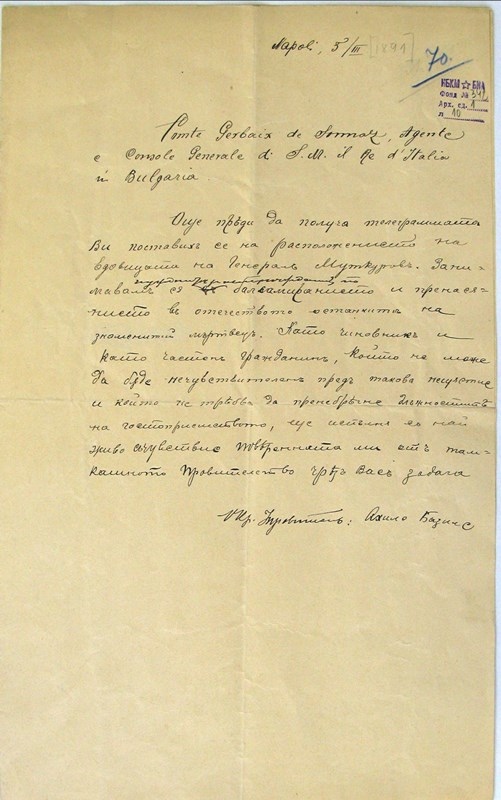 Napoli, 3/III [1891]
70.
НБКМ ☆ БИА
Фонд №
Арх. ед. 1
л. 10
Comte Gerbaix de Sonnaz, Agente
e Console Generale di S. M. il Re d'Italia
in Bulgaria.
Още прѣди да получа телеграммата
Ви поставихъ се на расположението на
вдовицата на Генералъ Муткуровъ. Зани-
мавамъ се балзамиранието и пренася-
нието въ отечеството останкитѣ на
знаменитий мъртвецъ. Като чиновникъ и
като частенъ гражданинъ, който не може
да бѫде нечувствителенъ предъ такова нещастие
и който не трѣбва да пренебрѣгне длъжноститѣ
на гостоприемството, ще испълня съ най
живо съчувствие повѣренната ми отъ там-
кашното Правителство чрѣзъ Васъ задача
Ахило Базине